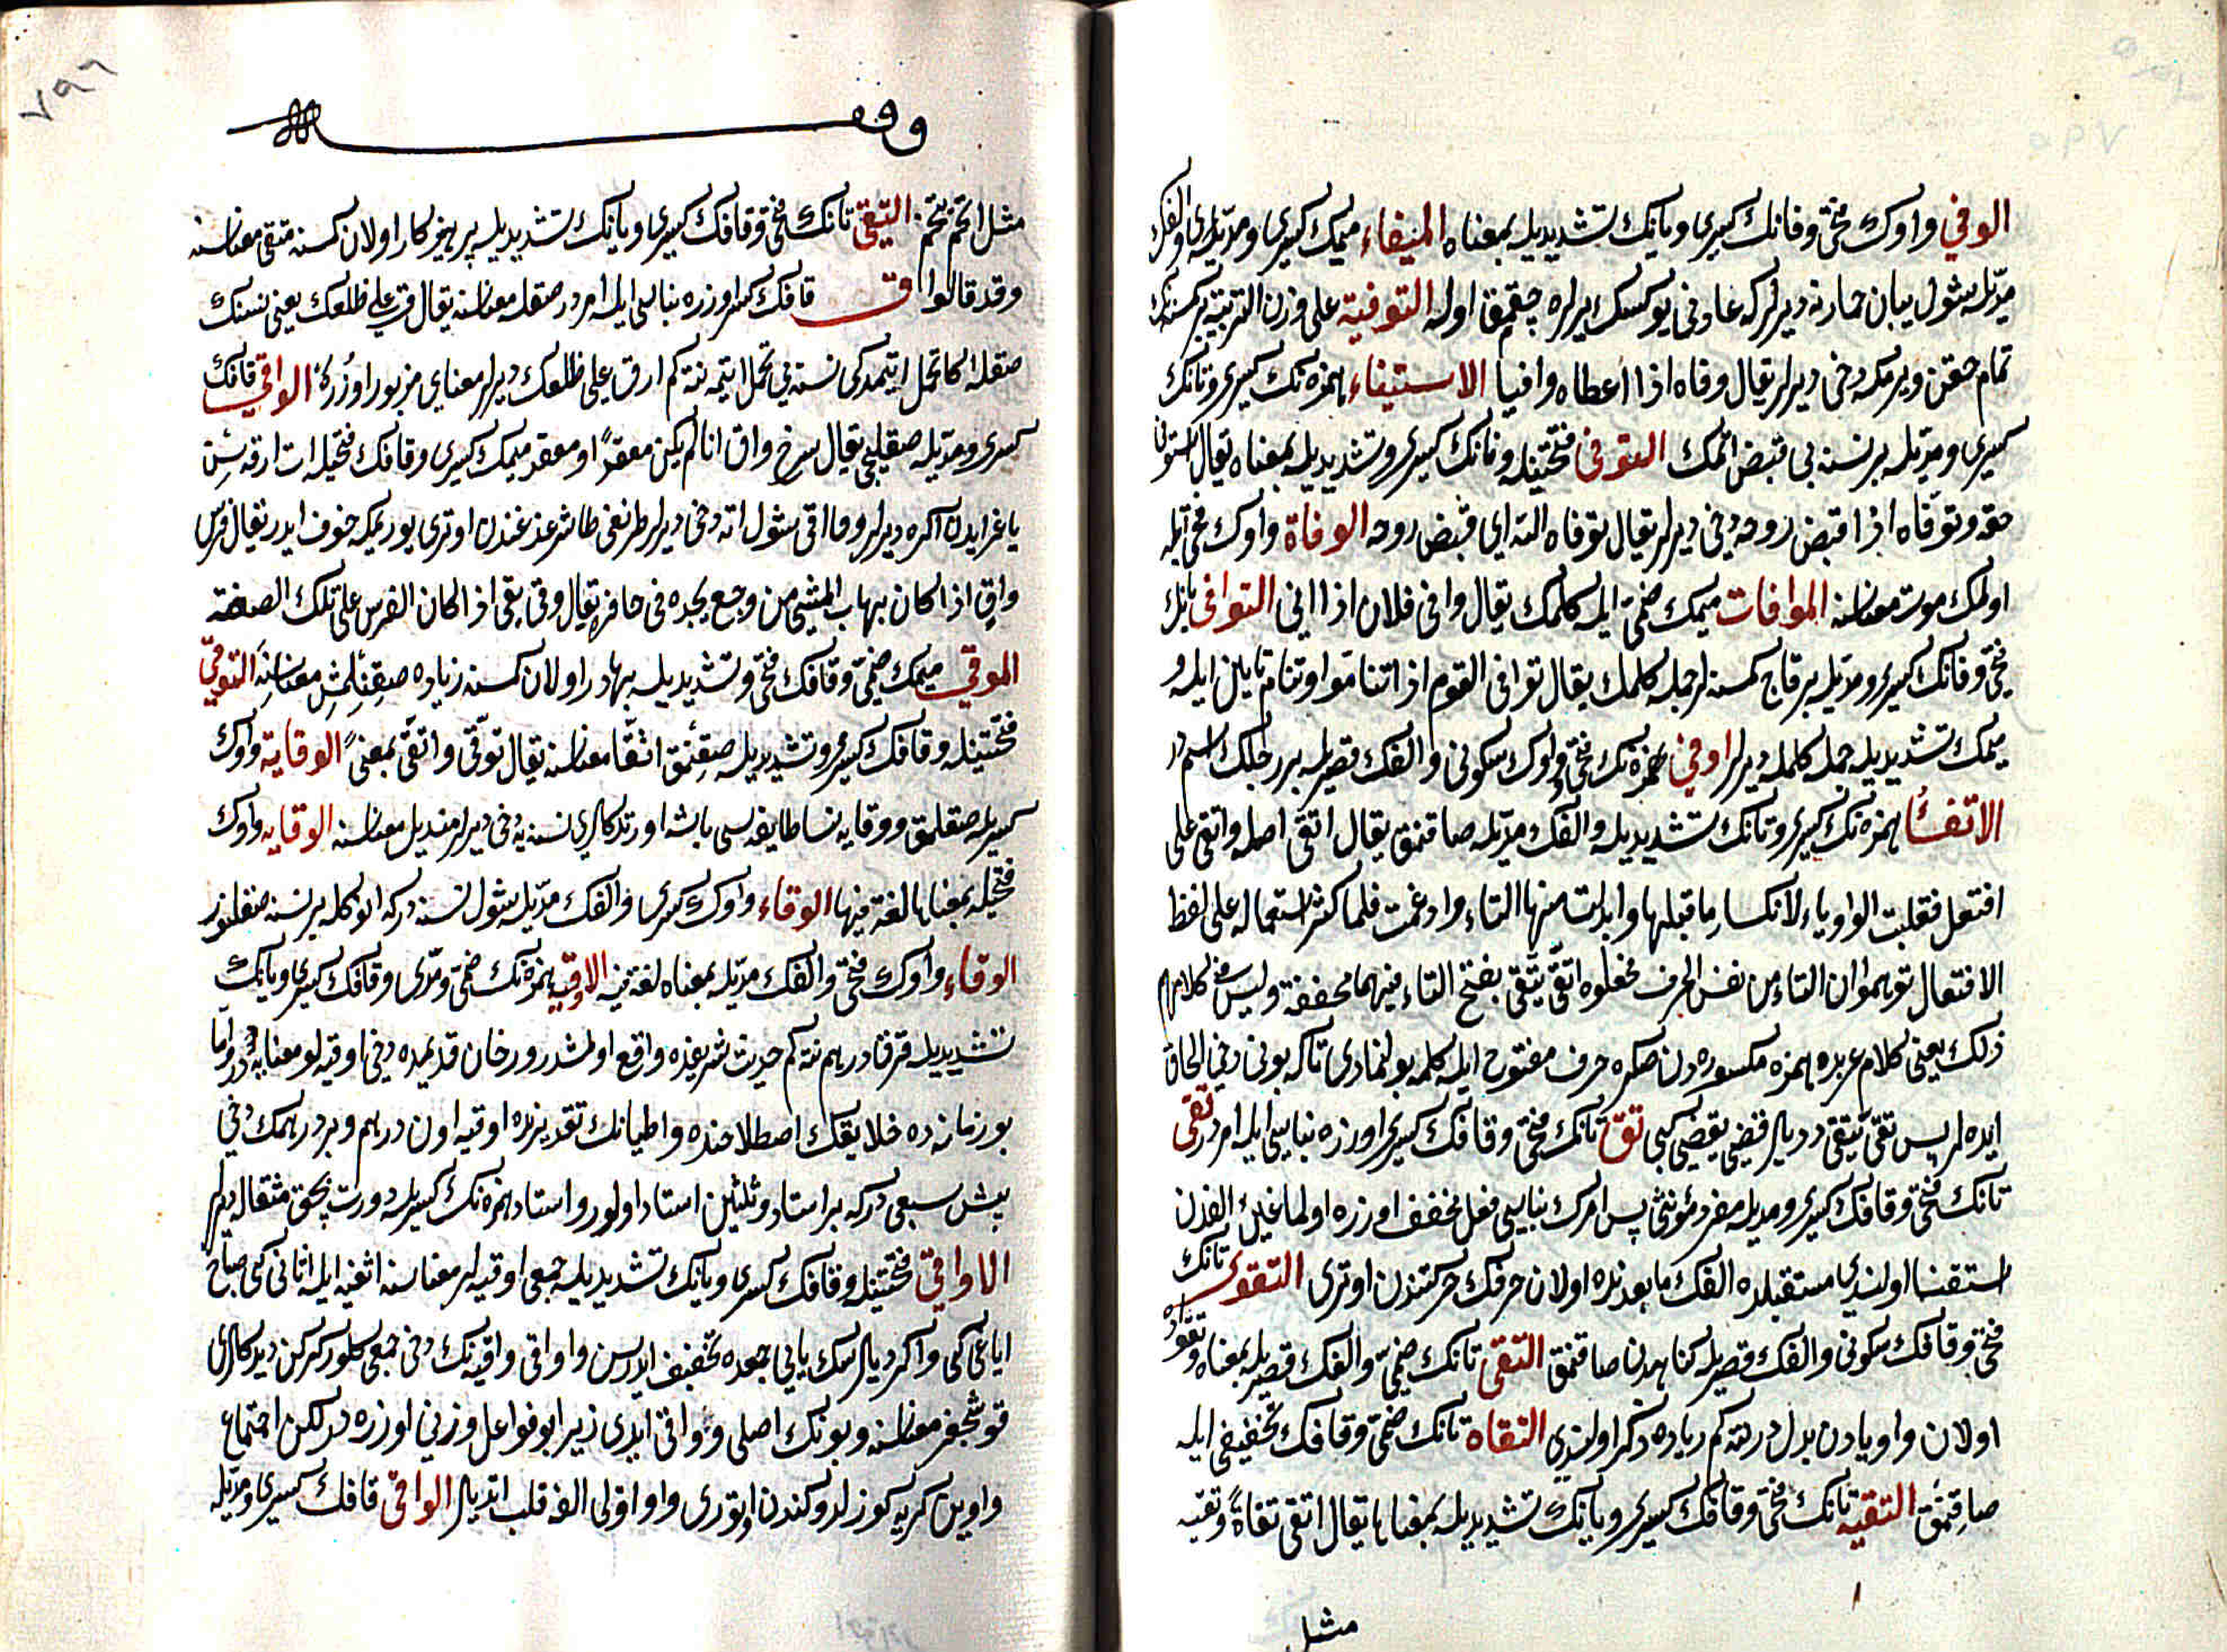 الوفي واوك فتحى وفانك كسرى ويانك تشديديله بمعناه الميفاء ميمك كسرى ومديله والفك
مديله شول بيان حمارنه ديرلركه عاونى يوكسك يرلره چقمق اوله التوفية على وزن التربية بر كسنه نك
تمام حقن ويرمكه دخى ديرلر يقال وفاه اذا اعطاه وافيا الاستيفاء همزه نك كسرى وتانك
كسرى ومديله بر نسنه يى قبض اتمك التوفى فتحتينله وفانك كسرى وتشديديله بمعناه يقال استوفى
حقه وتوفاه اذا قبض روحه دخى ديرلر يقال توفاه الله اى قبض روحه الوفاة واوك فتحى ايله
اولمك موت معناسنه الموافات ميمك ضمى ايله كلمك يقال وافى فلان اذا اتى التوافى تانك
فتحى وفانك كسرى ومديله بر قاچ كمسنه لر جمله كلمك يقال توافى القوم اذا تتاموا وتتام تايلن ايله و
ميمك تشديديله جمله كلمكه ديرلر اوفى همزه نك فتحى وواوك سكونى والفك قصريله بر رجلك اسمدر
الاتقاء همزه نك كسرى وتانك تشديديله والفك مديله صاقنمق يقال اتقى اصله واتقى على
افتعل فقلبت الواو ياء لانكسار ما قبلها وابدلت منها التاء وادغمت فلما كثر استعماله على لفظ
الافتعال توهموا ان التاء من نفس الحرف فجعلوه اتقى يتقى بفتح التاء فيهما مخففة وليس فى كلامهم
ذلك يعنى كلام عربده همزه مكسوره دن صكره حرف مفتوح ايله كلمه بولنمادى تاكه بونى دخى الحاق
ايده لر پس تقى يتقى ديديلر قضى يقضى كبى تق تانك فتحى وقافك كسرى اوزره بناسى ايله امردر تقى
تانك فتحى وقافك كسرى ومديله مفرد مؤنثى پس امرك بناسى فعل مخفف اوزره اولماغين الفدن
استغنا اولندى مستقبلده الفك ما بعدنده اولان حرفك حركتندن اوترى التقوى تانك
فتحى وقافك سكونى والفك قصريله كناهدن صاقنمق التقى تانك ضمى والفك قصريله بمعناه وتقواده
اولان واو يادن بدلدر نته كم رياده ذكر اولندى التقاه تانك ضمى وقافك تخفيفى ايله
صاقنمق التقيه تانك فتحى وقافك كسرى ويانك تشديديله بمعناها يقال اتقى تقاة وتقيه
مثل
وقف
مثل اتخم تخم التقى تانك فتحى وقافك كسرى ويانك تشديديله پرهيزكار اولان كمسنه متقى معناسنه
وقد قالوا ق قافك كسرى اوزره بناسى ايله امردر صقله معناسنه يقال ق على ظلعك يعنى نسنك
صقله اكا تحمل ايتمدكى نسنه يى تحمل ايتمه نته كم ارق على ظلعك ديرلر معناى مزبور اوزره الواقى قافك
كسرى ومديله صقليجى يقال سرج واق اذا لم يكن معقرا ومعقر ميمك كسرى وقافك فتحيله ات ارقه سن
ياغر ايدن اكره ديرلر وما اقى شول اته دخى ديرلر طرنغى طاشرغندن اوترى يوريمكه خوف ايدر يقال فرس
واق اذا كان يهاب المشى من وجع يجده فى حافره يقال وقى يقى اذا كان الفرس على تلك الصفة
الموقى ميمك ضمى وقافك فتحى وتشديديله بهادر اولان كمسنه زياده صقنلمش معناسنه التوقى
فتحتينله وقافك كسرى وتشديديله صقنمق اتقا معناسنه يقال توقى واتقى بمعنى الوقاية واوك
كسريله صقلمق ووقايه نسا طايفه سى باشه اورتدكلرى نسنه يه دخى ديرلر منديل معناسنه الوقايه واوك
فتحيله بمعناها لغة فيها الوقاء واوك كسرى والفك مديله شول نسنه دركه انوكله بر نسنه صقلنور
الوقاء واوك فتحى والفك مديله بمعناه لغة فيه الاوقيه همزه نك ضمى ومدى وقافك كسرى ويانك
تشديديله قرق درهم نته كم حديث شريفده واقع اولمشدر وزمان قديمده دخى اوقيه لو معنايه در واما
بو زمانه ده خلايقك اصطلاحنده واطبانك تقديرنده اوقيه اون درهم وبر درهمك دخى
بيش سبعى دركه بر استار وثلثين استار اولور واستار همزه نك كسريله دورت بچق مثقاله ديرلر
الاواقى فتحتينله وقافك كسرى ويانك تشديديله جمعى اوقيه لر معناسنه اثفيه ايله اثافى كبى صباح
اياغى كبى واكر ديلرسك يايى جمعده تخفيف ايدرسن واواقى واقيه نك دخى جمعى كلور كركن ديدكلرى
قوشجغز معناسنه وبونك اصلى وواقى ايدى زيرا بو فواعل وزنى اوزره در لكن اجتماع
واوين كريه كوزلدوكندن اوتورى واو اولى الفه قلب اتديلر الواقى قافك كسرى ومديله